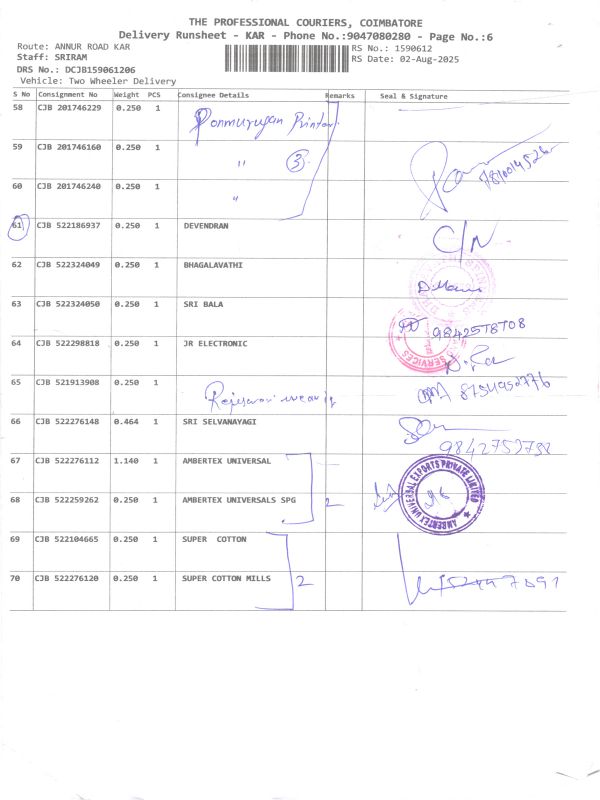 THE PROFESSIONAL COURIERS, COIMBATORE
Delivery Runsheet - KAR - Phone No.:9047080280 - Page No.:6
Route: ANNUR ROAD KAR
RS No.: 1590612
Staff: SRIRAM
RS Date: 02-Aug-2025
DRS No.: DCJB159061206
Vehicle: Two Wheeler Delivery
S No Consignment No Weight PCS Consignee Details Remarks Seal & Signature
58 CJB 201746229 0.250 1 Ponmurugan Printer
59 CJB 201746160 0.250 1 " 3
60 CJB 201746240 0.250 1 "
61 CJB 522186937 0.250 1 DEVENDRAN C/N
62 CJB 522324049 0.250 1 BHAGALAVATHI
63 CJB 522324050 0.250 1 SRI BALA
64 CJB 522298818 0.250 1 JR ELECTRONIC
65 CJB 521913908 0.250 1 8754952776
66 CJB 522276148 0.464 1 SRI SELVANAYAGI
67 CJB 522276112 1.140 1 AMBERTEX UNIVERSAL
AMBERTEX UNIVERSAL EXPORTS PRIVATE LIMITED
68 CJB 522259262 0.250 1 AMBERTEX UNIVERSALS SPG 2
69 CJB 522104665 0.250 1 SUPER COTTON
70 CJB 522276120 0.250 1 SUPER COTTON MILLS 2